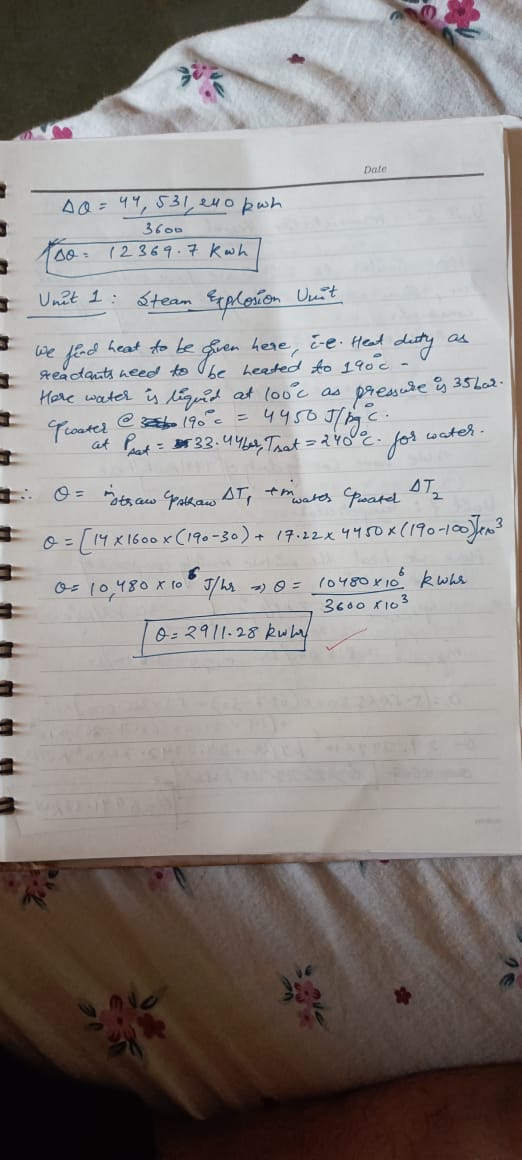 Date
ΔQ = 44,531,240 kwh
3600
ΔQ = 12369.7 kwh
Unit 1: Steam Explosion Unit
We find heat to be given here, i.e. Heat duty as
reactants need to be heated to 190°c -
Here water is liquid at 100°c as pressure is 35 bar.
Cpwater @ 190°c = 4450 J/kg°c.
at Psat = 33.44bar, Tsat = 240°c. for water.
∴ Q = ṁstraw Cpstraw ΔT1 + ṁwater Cpwater ΔT2
Q = [14 x 1600 x (190-30) + 17.22 x 4450 x (190-100)] x10³
Q = 10,480 x 10⁶ J/hr ⇒ Q = 10480 x10⁶ kwhr
3600 x10³
Q = 2911.28 kwhr